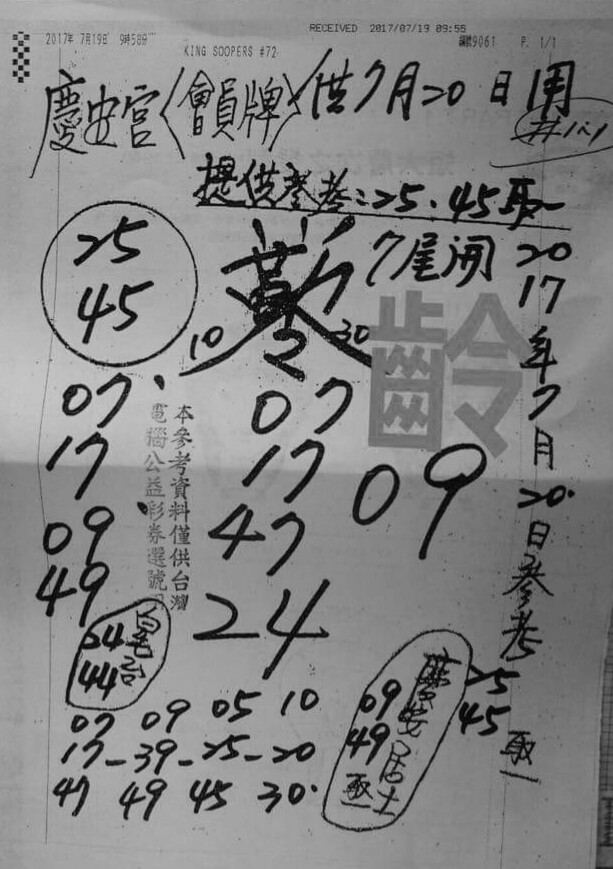 RECEIVED 2017/07/19 09:55
2017年 7月19日 9時58分
KING SOOPERS #72
9061 P. 1/1
慶安宮〈會員牌〉供7月20日用
提供參考:25.45取一
25
45
7尾開
10 30
齡
2017年7月20日參考
25
45
取一
07
17
09
49
本參考資料僅供台灣
電腦公益彩券選號用
07
17
47
24
09
24
44
慶安居士
09
49
取一
07 09 05 10
17-39-25-20
47 49 45 30